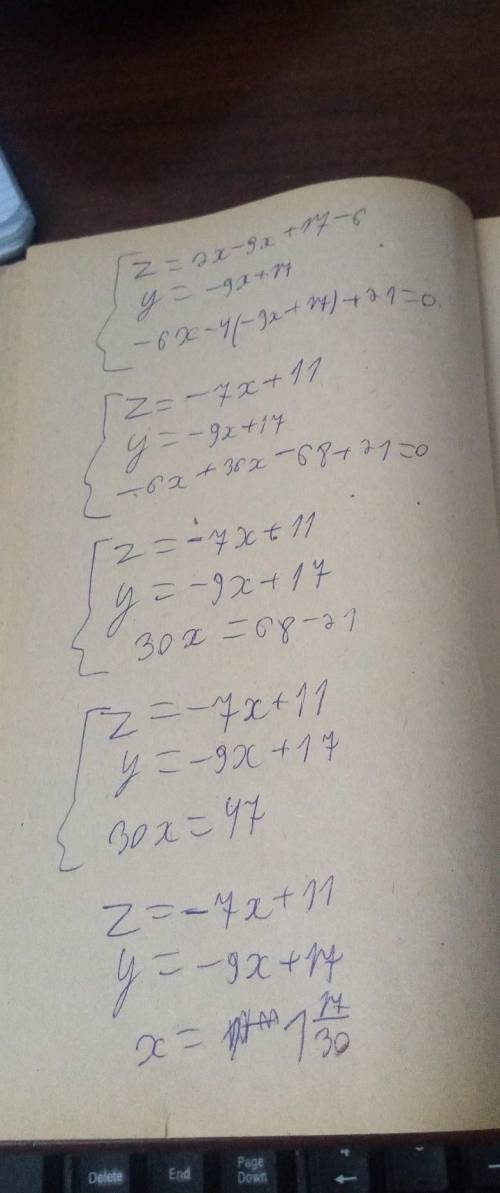 z = 2x-9x+17-6
y = -9x+17
-6x-4(-9x+17)+21=0
z = -7x+11
y = -9x+17
-6x+36x-68+21=0
z = -7x+11
y = -9x+17
30x = 68-21
z = -7x+11
y = -9x+17
30x = 47
z = -7x+11
y = -9x+17
x = 1 17/30
Delete End Page Down